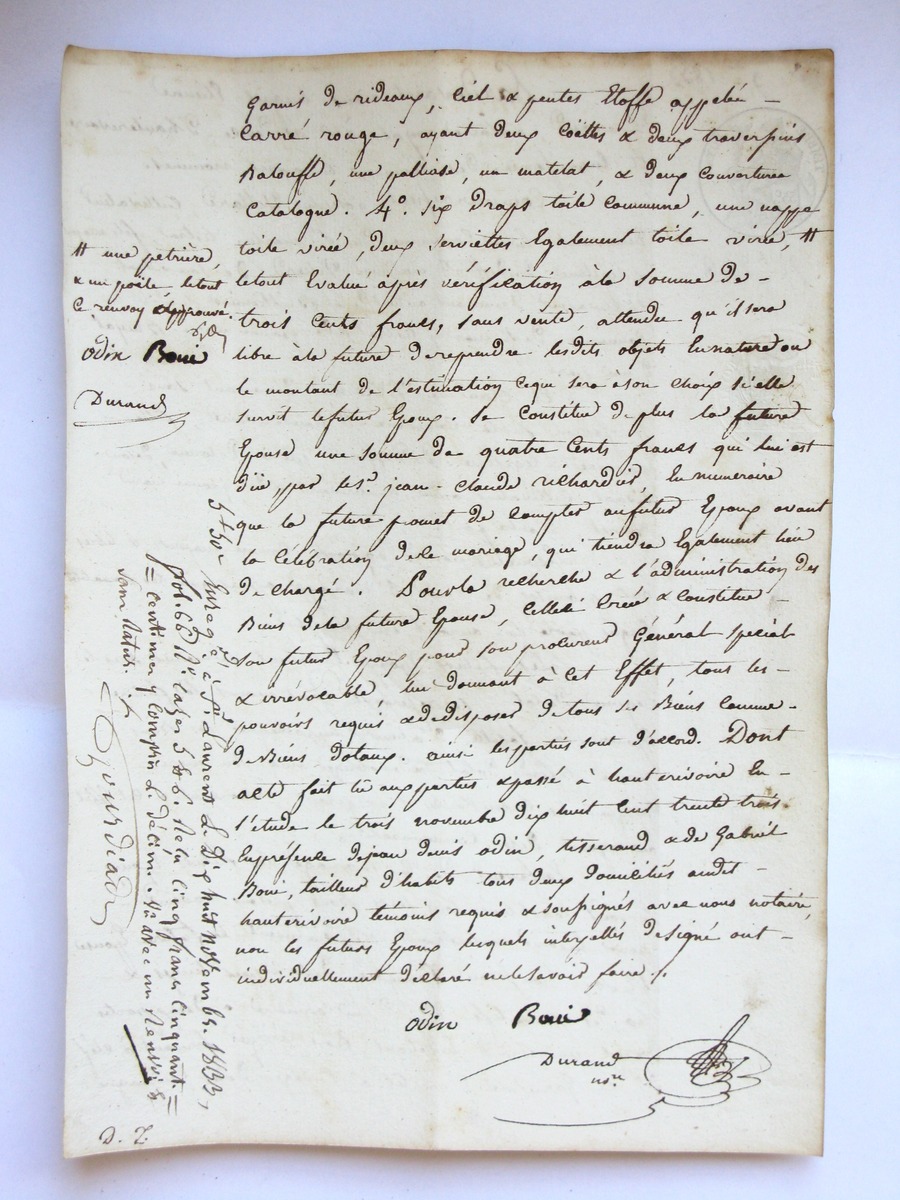 Garnis de rideaux, Ciel & pentes Etoffe appelée –
Carré rouge, ayant deux coëttes & deux traverpins
Balouffe, une palliase, un matelat, & deux couvertures
Catalogne. 4°. Six draps toile commune, une nappe
toile virée, deux serviettes Egalement toile virée, #
letout Evalué après vérification àla somme de –
trois cents francs, sans vente, attendu qu'il sera
libre àla future de reprendre lesdits objets Ennature ou
le montant de l'estimation cequi sera àson choix si elle
survit lefutur Epoux. Se Constitue de plus la future
Epouse une somme de quatre Cents francs qui lui est
düe, par le Sr. jean-Claude richardier, En numeraire
que la future promet de compter aufutur Epoux avant
la Célébration dele mariage, qui tiendra Egalement lieu
de chargé. Pourla recherche & l'administration des
Biens dela future Epouse, Celleci Créé & Constitue –
son futur Epoux pour son procureur Général special
& irrévocable, lui donnant à Cet Effet, tous les –
pouvoirs requis & dedisposer detous ses Biens Comme –
de Biens dotaux. ainsi lesparties sont d'accord. Dont
acte fait lû aux parties & passé à hauterivoire En –
l'étude le trois novembre dix huit Cent trente trois
Enprésence dejean denis odin, tisserand & de Gabriel
Boui, tailleur d'habits tous deux domiciliés audit –
hauterivoire témoins requis & soussignés avec nous notaire,
non les futurs Epoux lesquels interpellés designé ont –
individuellement déclaré nelesavoir faire./.
odin Boui
Durand
nre
# une petrière,
& un poële, letout
Ce renvoy approuvé.
odin Boui
Durand
Enregé à St. Laurent Le Dix huit novembre 1833,
fol. 66 Ro. cases 5 & 6. Reçu cinq francs cinquante =
= centimes y compris L. décime
Gourdiad
D. Z.